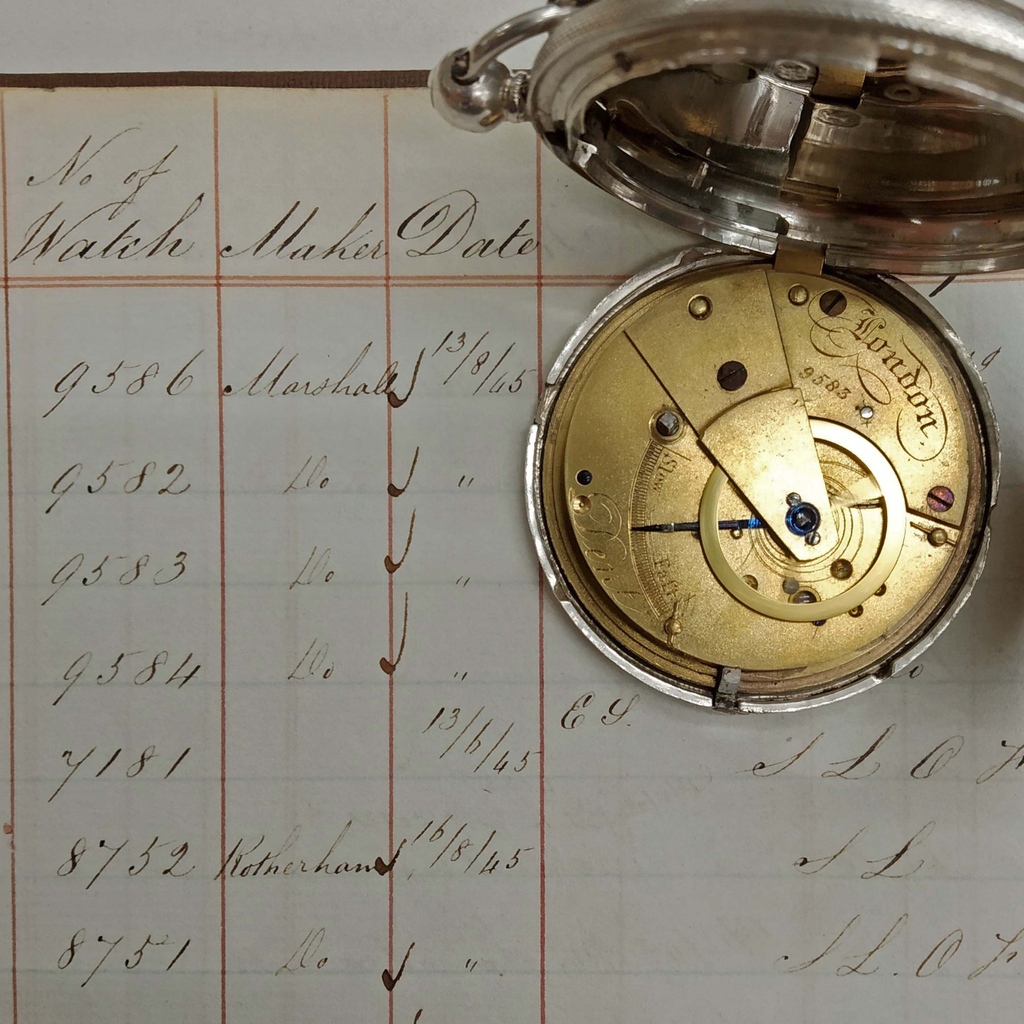 No of
Watch Maker Date
9586 Marshall 13/8/45
9582 Do "
9583 Do "
9584 Do "
7181 13/6/45 E S. S L O
8752 Rotherham 16/8/45 S L
8751 Do " S L. O
London
9583
Slow
Fast
Dent